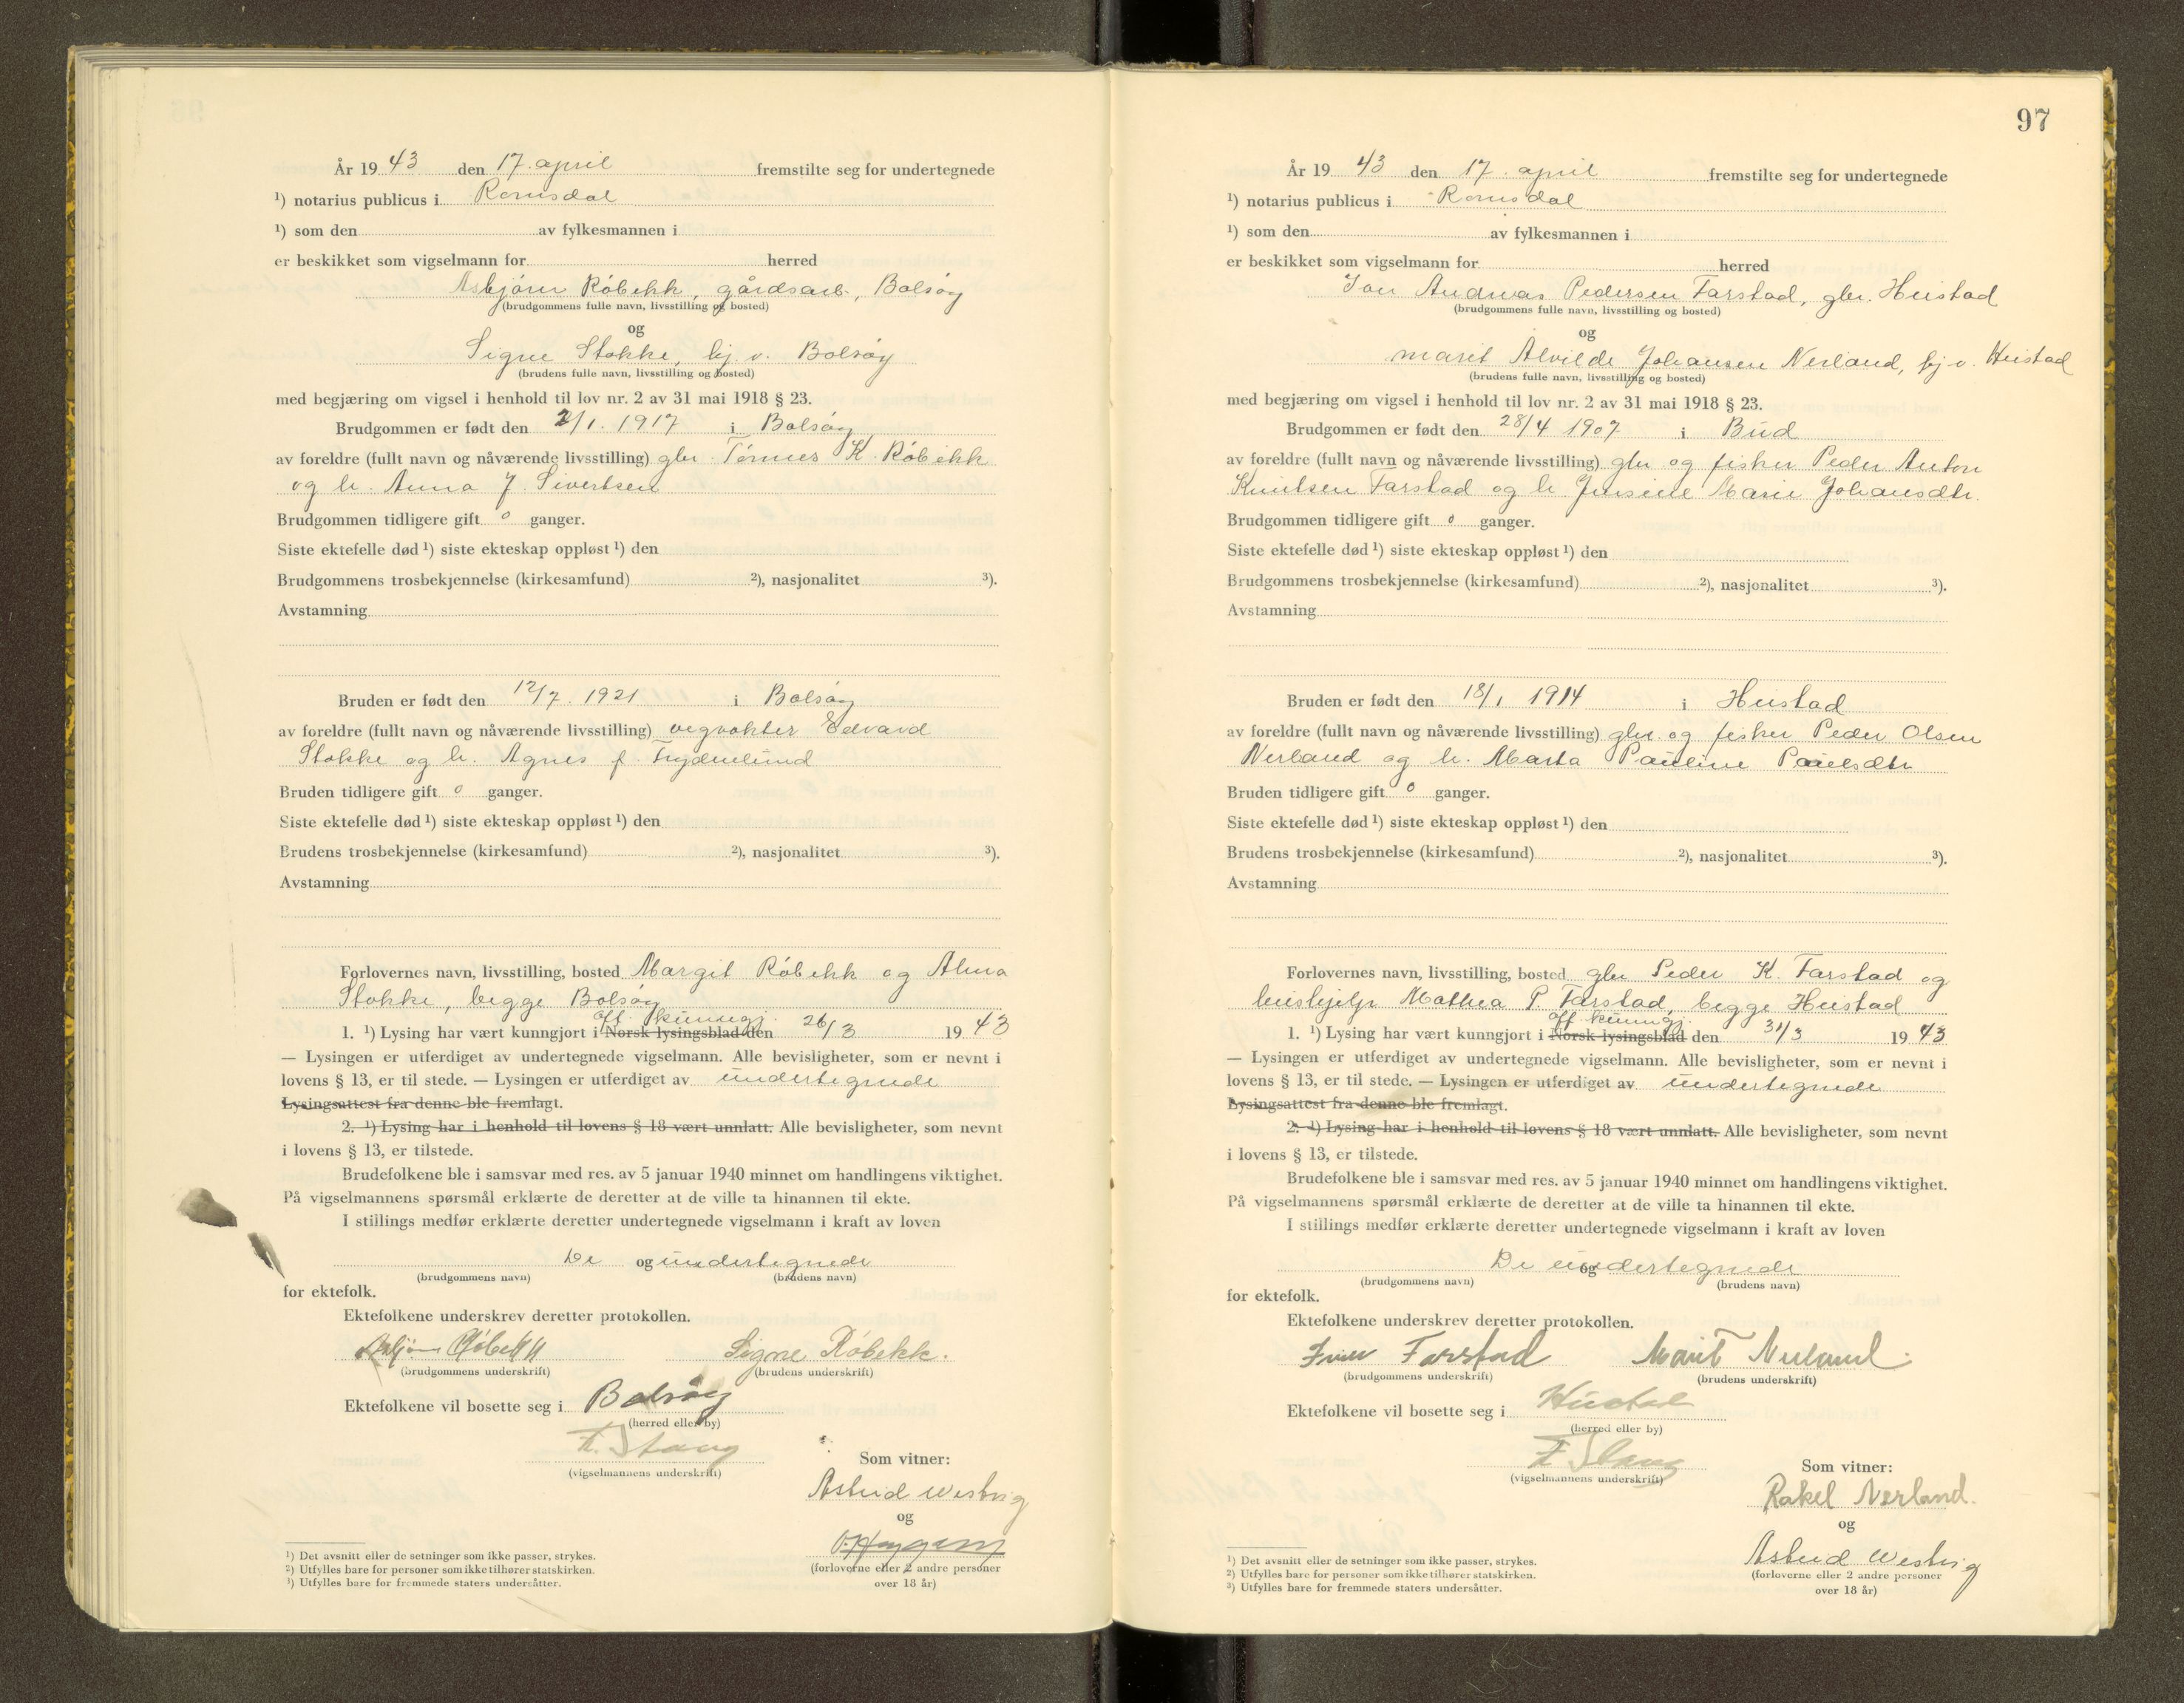 År 19 43 den 17. april fremstilte seg for undertegnede
¹) notarius publicus i Romsdal
¹) som den av fylkesmannen i
er beskikket som vigselmann for herred
Asbjörn Röbekk, gårdsarb., Bolsöy
(brudgommens fulle navn, livsstilling og bosted)
og
Signe Stokke, hj. v. Bolsöy
(brudens fulle navn, livsstilling og bosted)
med begjæring om vigsel i henhold til lov nr. 2 av 31 mai 1918 § 23.
Brudgommen er født den 2/1. 1917 i Bolsöy
av foreldre (fullt navn og nåværende livsstilling) gbr. Tönnes K. Röbekk
og h. Anna J. Sivertsen
Brudgommen tidligere gift 0 ganger.
Siste ektefelle død ¹) siste ekteskap oppløst ¹) den
Brudgommens trosbekjennelse (kirkesamfund) ²), nasjonalitet ³).
Avstamning
Bruden er født den 12/7. 1921 i Bolsöy
av foreldre (fullt navn og nåværende livsstilling) vegvokter Edvard
Stokke og h. Agnes f. Frydenlund
Bruden tidligere gift 0 ganger.
Siste ektefelle død ¹) siste ekteskap oppløst ¹) den
Brudens trosbekjennelse (kirkesamfund) ²), nasjonalitet ³).
Avstamning
Forlovernes navn, livsstilling, bosted Margit Röbekk og Alma
Stokke, begge Bolsöy
off. kunngj.
1. ¹) Lysing har vært kunngjort i Norsk lysingsblad den 26/3 19 43
— Lysingen er utferdiget av undertegnede vigselmann. Alle bevisligheter, som er nevnt i
lovens § 13, er til stede. — Lysingen er utferdiget av undertegnede
Lysingsattest fra denne ble fremlagt.
2. ¹) Lysing har i henhold til lovens § 18 vært unnlatt. Alle bevisligheter, som nevnt
i lovens § 13, er tilstede.
Brudefolkene ble i samsvar med res. av 5 januar 1940 minnet om handlingens viktighet.
På vigselmannens spørsmål erklærte de deretter at de ville ta hinannen til ekte.
I stillings medfør erklærte deretter undertegnede vigselmann i kraft av loven
De og undertegnede
(brudgommens navn) (brudens navn)
for ektefolk.
Ektefolkene underskrev deretter protokollen.
Asbjörn Röbekk Signe Röbekk.
(brudgommens underskrift) (brudens underskrift)
Ektefolkene vil bosette seg i Bolsöy
(herred eller by)
Stang
(vigselmannens underskrift)
Som vitner:
Astrid Westvig
og
(forloverne eller 2 andre personer
over 18 år)
¹) Det avsnitt eller de setninger som ikke passer, strykes.
²) Utfylles bare for personer som ikke tilhører statskirken.
³) Utfylles bare for fremmede staters undersåtter.
97
År 19 43 den 17. april fremstilte seg for undertegnede
¹) notarius publicus i Romsdal
¹) som den av fylkesmannen i
er beskikket som vigselmann for herred
Ivar Andreas Pedersen Farstad, gbr. Hustad
(brudgommens fulle navn, livsstilling og bosted)
og
Marit Alvilde Johansen Nerland, hj v. Hustad
(brudens fulle navn, livsstilling og bosted)
med begjæring om vigsel i henhold til lov nr. 2 av 31 mai 1918 § 23.
Brudgommen er født den 28/4 1907 i Bud
av foreldre (fullt navn og nåværende livsstilling) gbr. og fisker Peder Anton
Knutsen Farstad og h. Jensine Marie Johansdtr.
Brudgommen tidligere gift 0 ganger.
Siste ektefelle død ¹) siste ekteskap oppløst ¹) den
Brudgommens trosbekjennelse (kirkesamfund) ²), nasjonalitet ³).
Avstamning
Bruden er født den 18/1 1914 i Hustad
av foreldre (fullt navn og nåværende livsstilling) gbr. og fisker Peder Olsen
Nerland og h. Marta Pauline Paulsdtr
Bruden tidligere gift 0 ganger.
Siste ektefelle død ¹) siste ekteskap oppløst ¹) den
Brudens trosbekjennelse (kirkesamfund) ²), nasjonalitet ³).
Avstamning
Forlovernes navn, livsstilling, bosted gbr Peder K. Farstad og
hushjelp Mathea P. Farstad, begge Hustad
off. kunngj.
1. ¹) Lysing har vært kunngjort i Norsk lysingsblad den 31/3 19 43
— Lysingen er utferdiget av undertegnede vigselmann. Alle bevisligheter, som er nevnt i
lovens § 13, er til stede. — Lysingen er utferdiget av undertegnede
Lysingsattest fra denne ble fremlagt.
2. ¹) Lysing har i henhold til lovens § 18 vært unnlatt. Alle bevisligheter, som nevnt
i lovens § 13, er tilstede.
Brudefolkene ble i samsvar med res. av 5 januar 1940 minnet om handlingens viktighet.
På vigselmannens spørsmål erklærte de deretter at de ville ta hinannen til ekte.
I stillings medfør erklærte deretter undertegnede vigselmann i kraft av loven
De undertegnede
og
(brudgommens navn) (brudens navn)
for ektefolk.
Ektefolkene underskrev deretter protokollen.
Ivar Farstad Marit Nerland.
(brudgommens underskrift) (brudens underskrift)
Ektefolkene vil bosette seg i Hustad
(herred eller by)
Stang
(vigselmannens underskrift)
Som vitner:
Rakel Nerland.
og
Astrid Westvig
(forloverne eller 2 andre personer
over 18 år)
¹) Det avsnitt eller de setninger som ikke passer, strykes.
²) Utfylles bare for personer som ikke tilhører statskirken.
³) Utfylles bare for fremmede staters undersåtter.